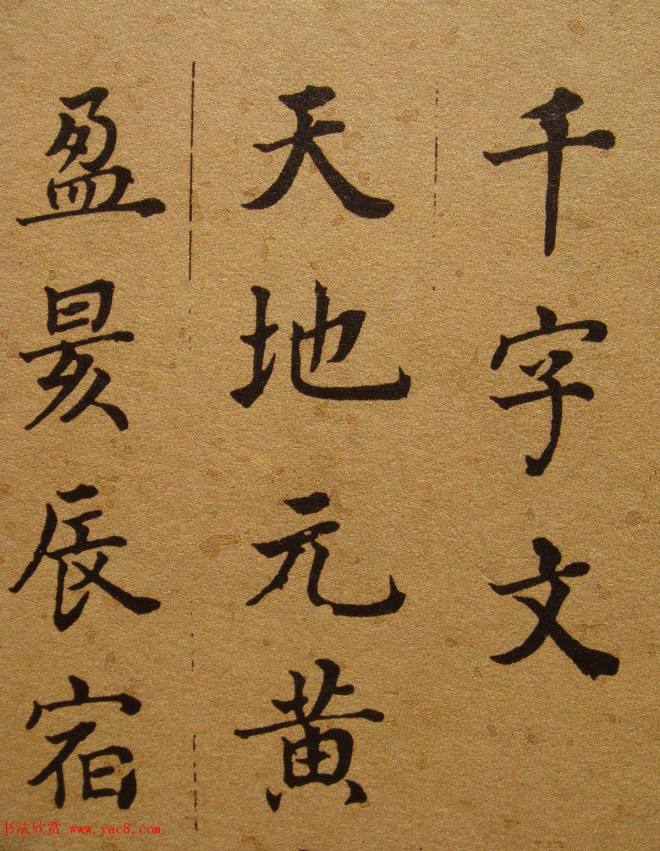 千字文
天地元黄
盈昃辰宿
书法欣赏 www.yac8.com